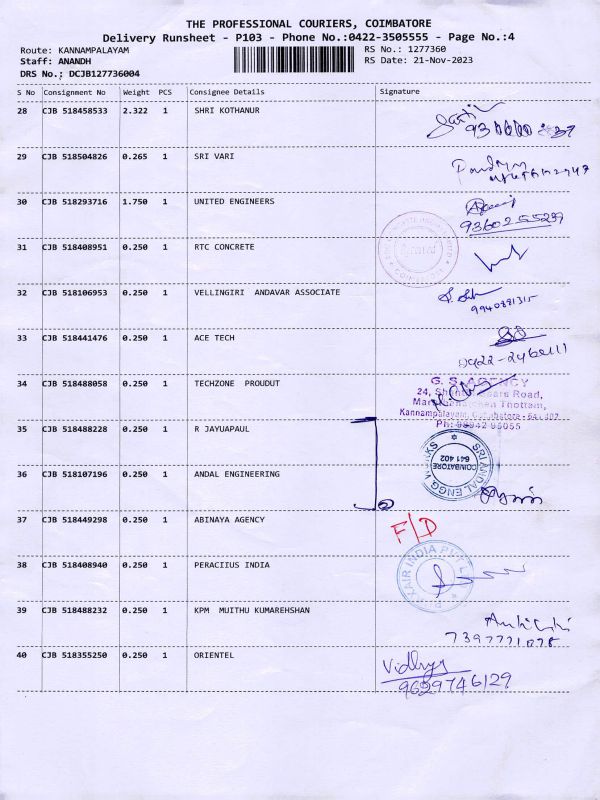 THE PROFESSIONAL COURIERS, COIMBATORE
Delivery Runsheet - P103 - Phone No.:0422-3505555 - Page No.:4
Route: KANNAMPALAYAM RS No.: 1277360
Staff: ANANDH RS Date: 21-Nov-2023
DRS No.: DCJB127736004
S No Consignment No Weight PCS Consignee Details Signature
28 CJB 518458533 2.322 1 SHRI KOTHANUR
29 CJB 518504826 0.265 1 SRI VARI
30 CJB 518293716 1.750 1 UNITED ENGINEERS
9360255239
31 CJB 518408951 0.250 1 RTC CONCRETE
32 CJB 518106953 0.250 1 VELLINGIRI ANDAVAR ASSOCIATE
9940391315
33 CJB 518441476 0.250 1 ACE TECH
34 CJB 518488058 0.250 1 TECHZONE PROUDUT
G. S. AGENCY
24, Road,
Thottam,
Kannampalayam, Coimbatore - 641 402
35 CJB 518488228 0.250 1 R JAYUAPAUL
SRI ANDAL ENGG WORKS
COIMBATORE
641 402
36 CJB 518107196 0.250 1 ANDAL ENGINEERING
37 CJB 518449298 0.250 1 ABINAYA AGENCY
F/D
38 CJB 518408940 0.250 1 PERACIIUS INDIA
AIR INDIA
39 CJB 518488232 0.250 1 KPM MUITHU KUMAREHSHAN
40 CJB 518355250 0.250 1 ORIENTEL
Vidhya
9629746129